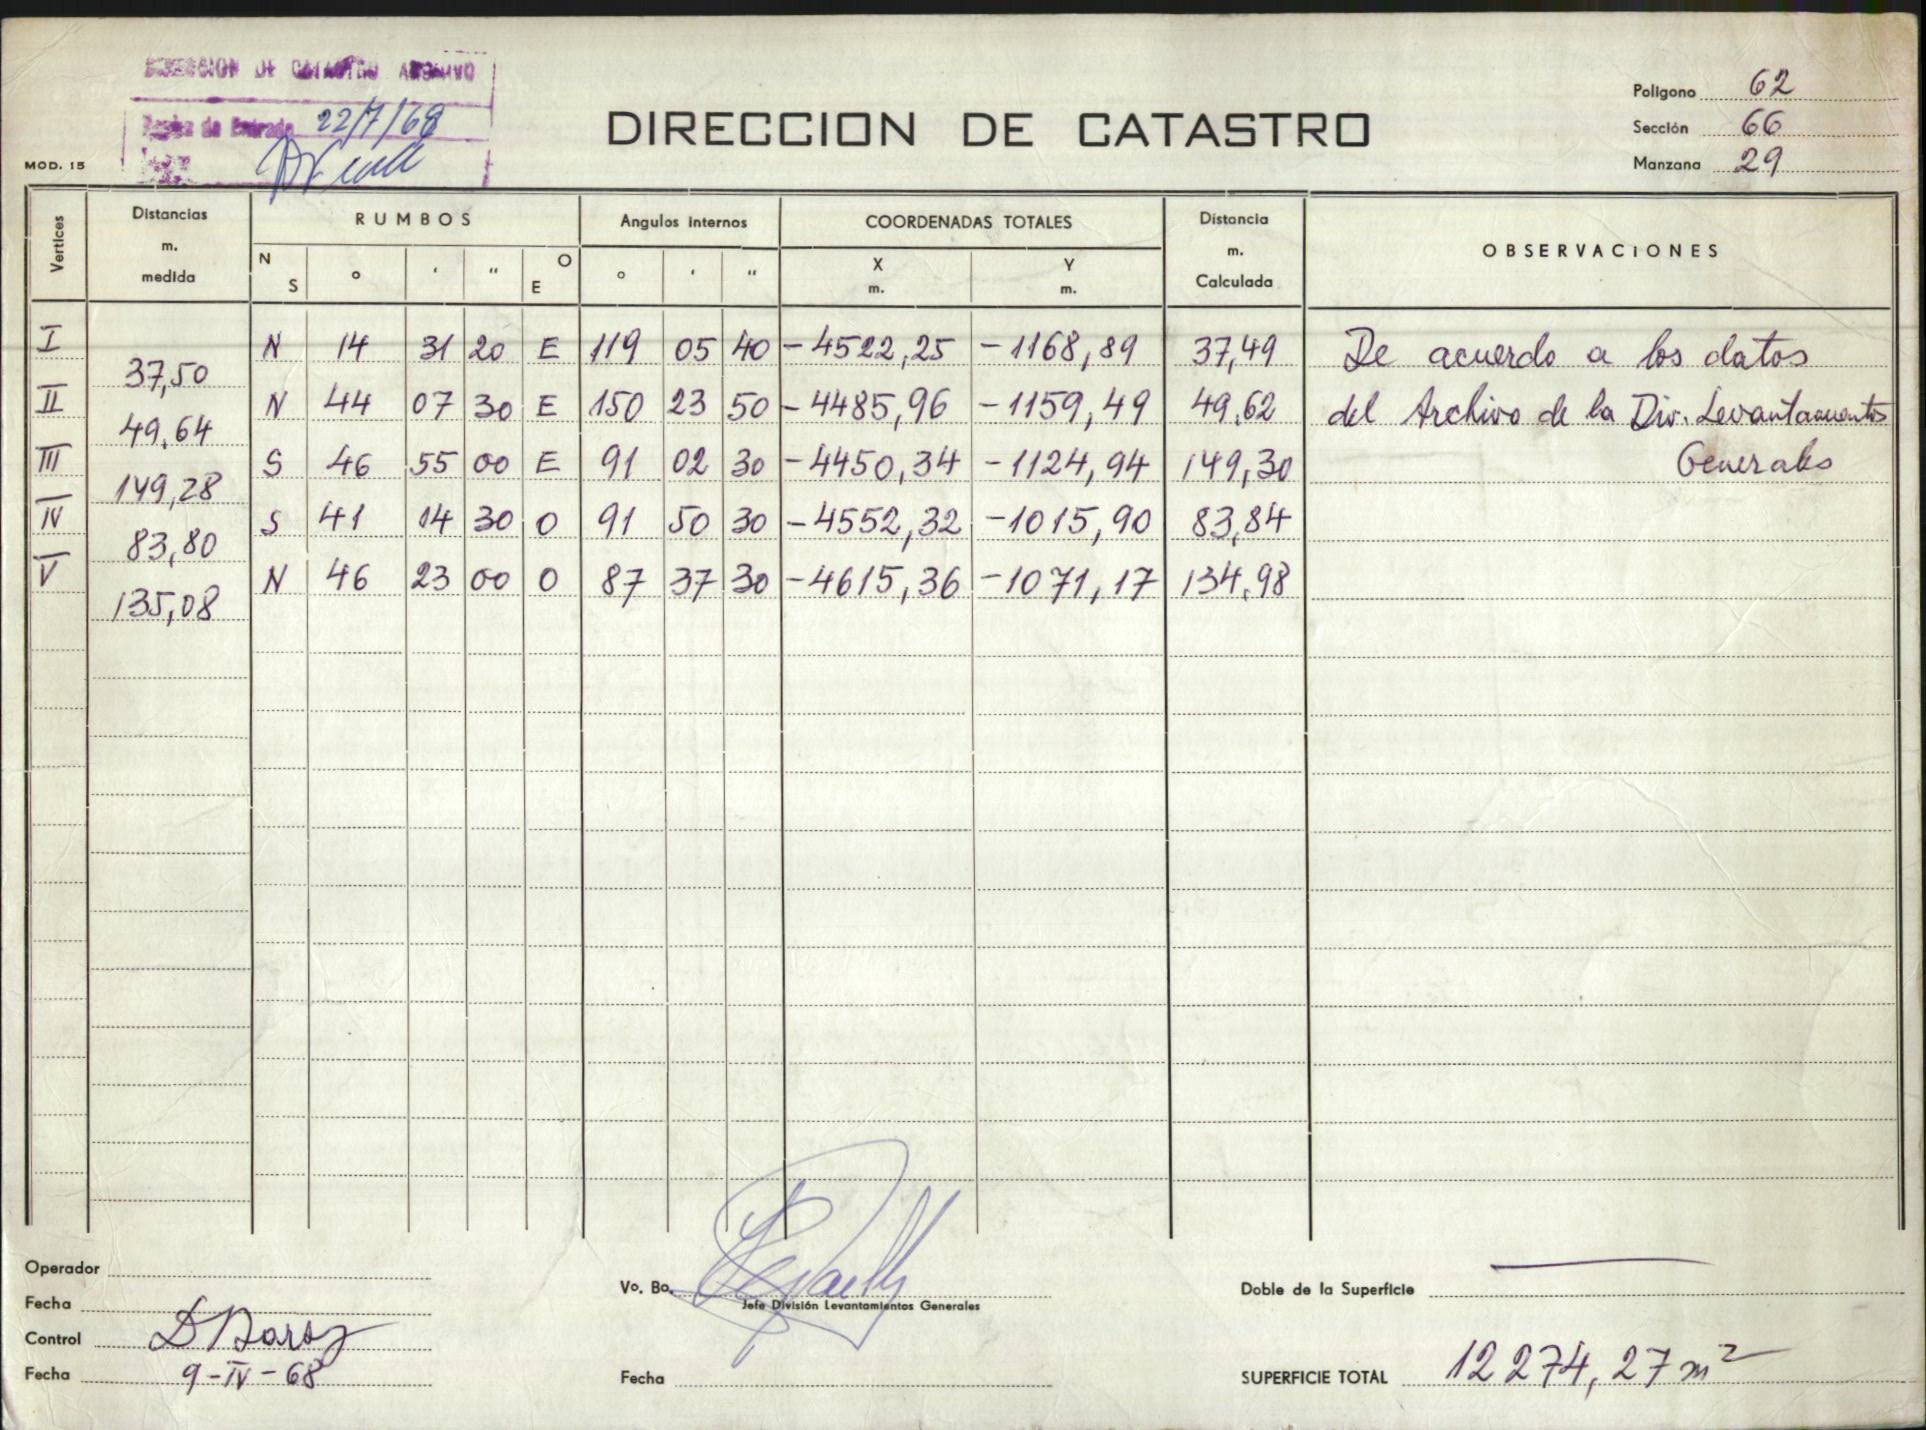 DIRECCION DE CATASTRO ARCHIVO
Fecha de Entrada 22/7/68
MOD. 15
DIRECCION DE CATASTRO
Polígono 62
Sección 66
Manzana 29
Vertices
Distancias m. medida
RUMBOS
N S ° ' " O E
Angulos Internos
° ' "
COORDENADAS TOTALES
X m. Y m.
Distancia m. Calculada
OBSERVACIONES
I N 14 31 20 E 119 05 40 -4522,25 -1168,89 37,49 De acuerdo a los datos
37,50
II N 44 07 30 E 150 23 50 -4485,96 -1159,49 49,62 del Archivo de la Div. Levantamientos
49,64
III S 46 55 00 E 91 02 30 -4450,34 -1124,94 149,30 Generales
149,28
IV S 41 14 30 O 91 50 30 -4552,32 -1015,90 83,84
83,80
V N 46 23 00 O 87 37 30 -4615,36 -1071,17 134,98
135,08
Operador
Fecha
Control
Fecha 9-IV-68
Vo. Bo.
Jefe División Levantamientos Generales
Fecha
Doble de la Superficie
SUPERFICIE TOTAL 12 274,27 m²